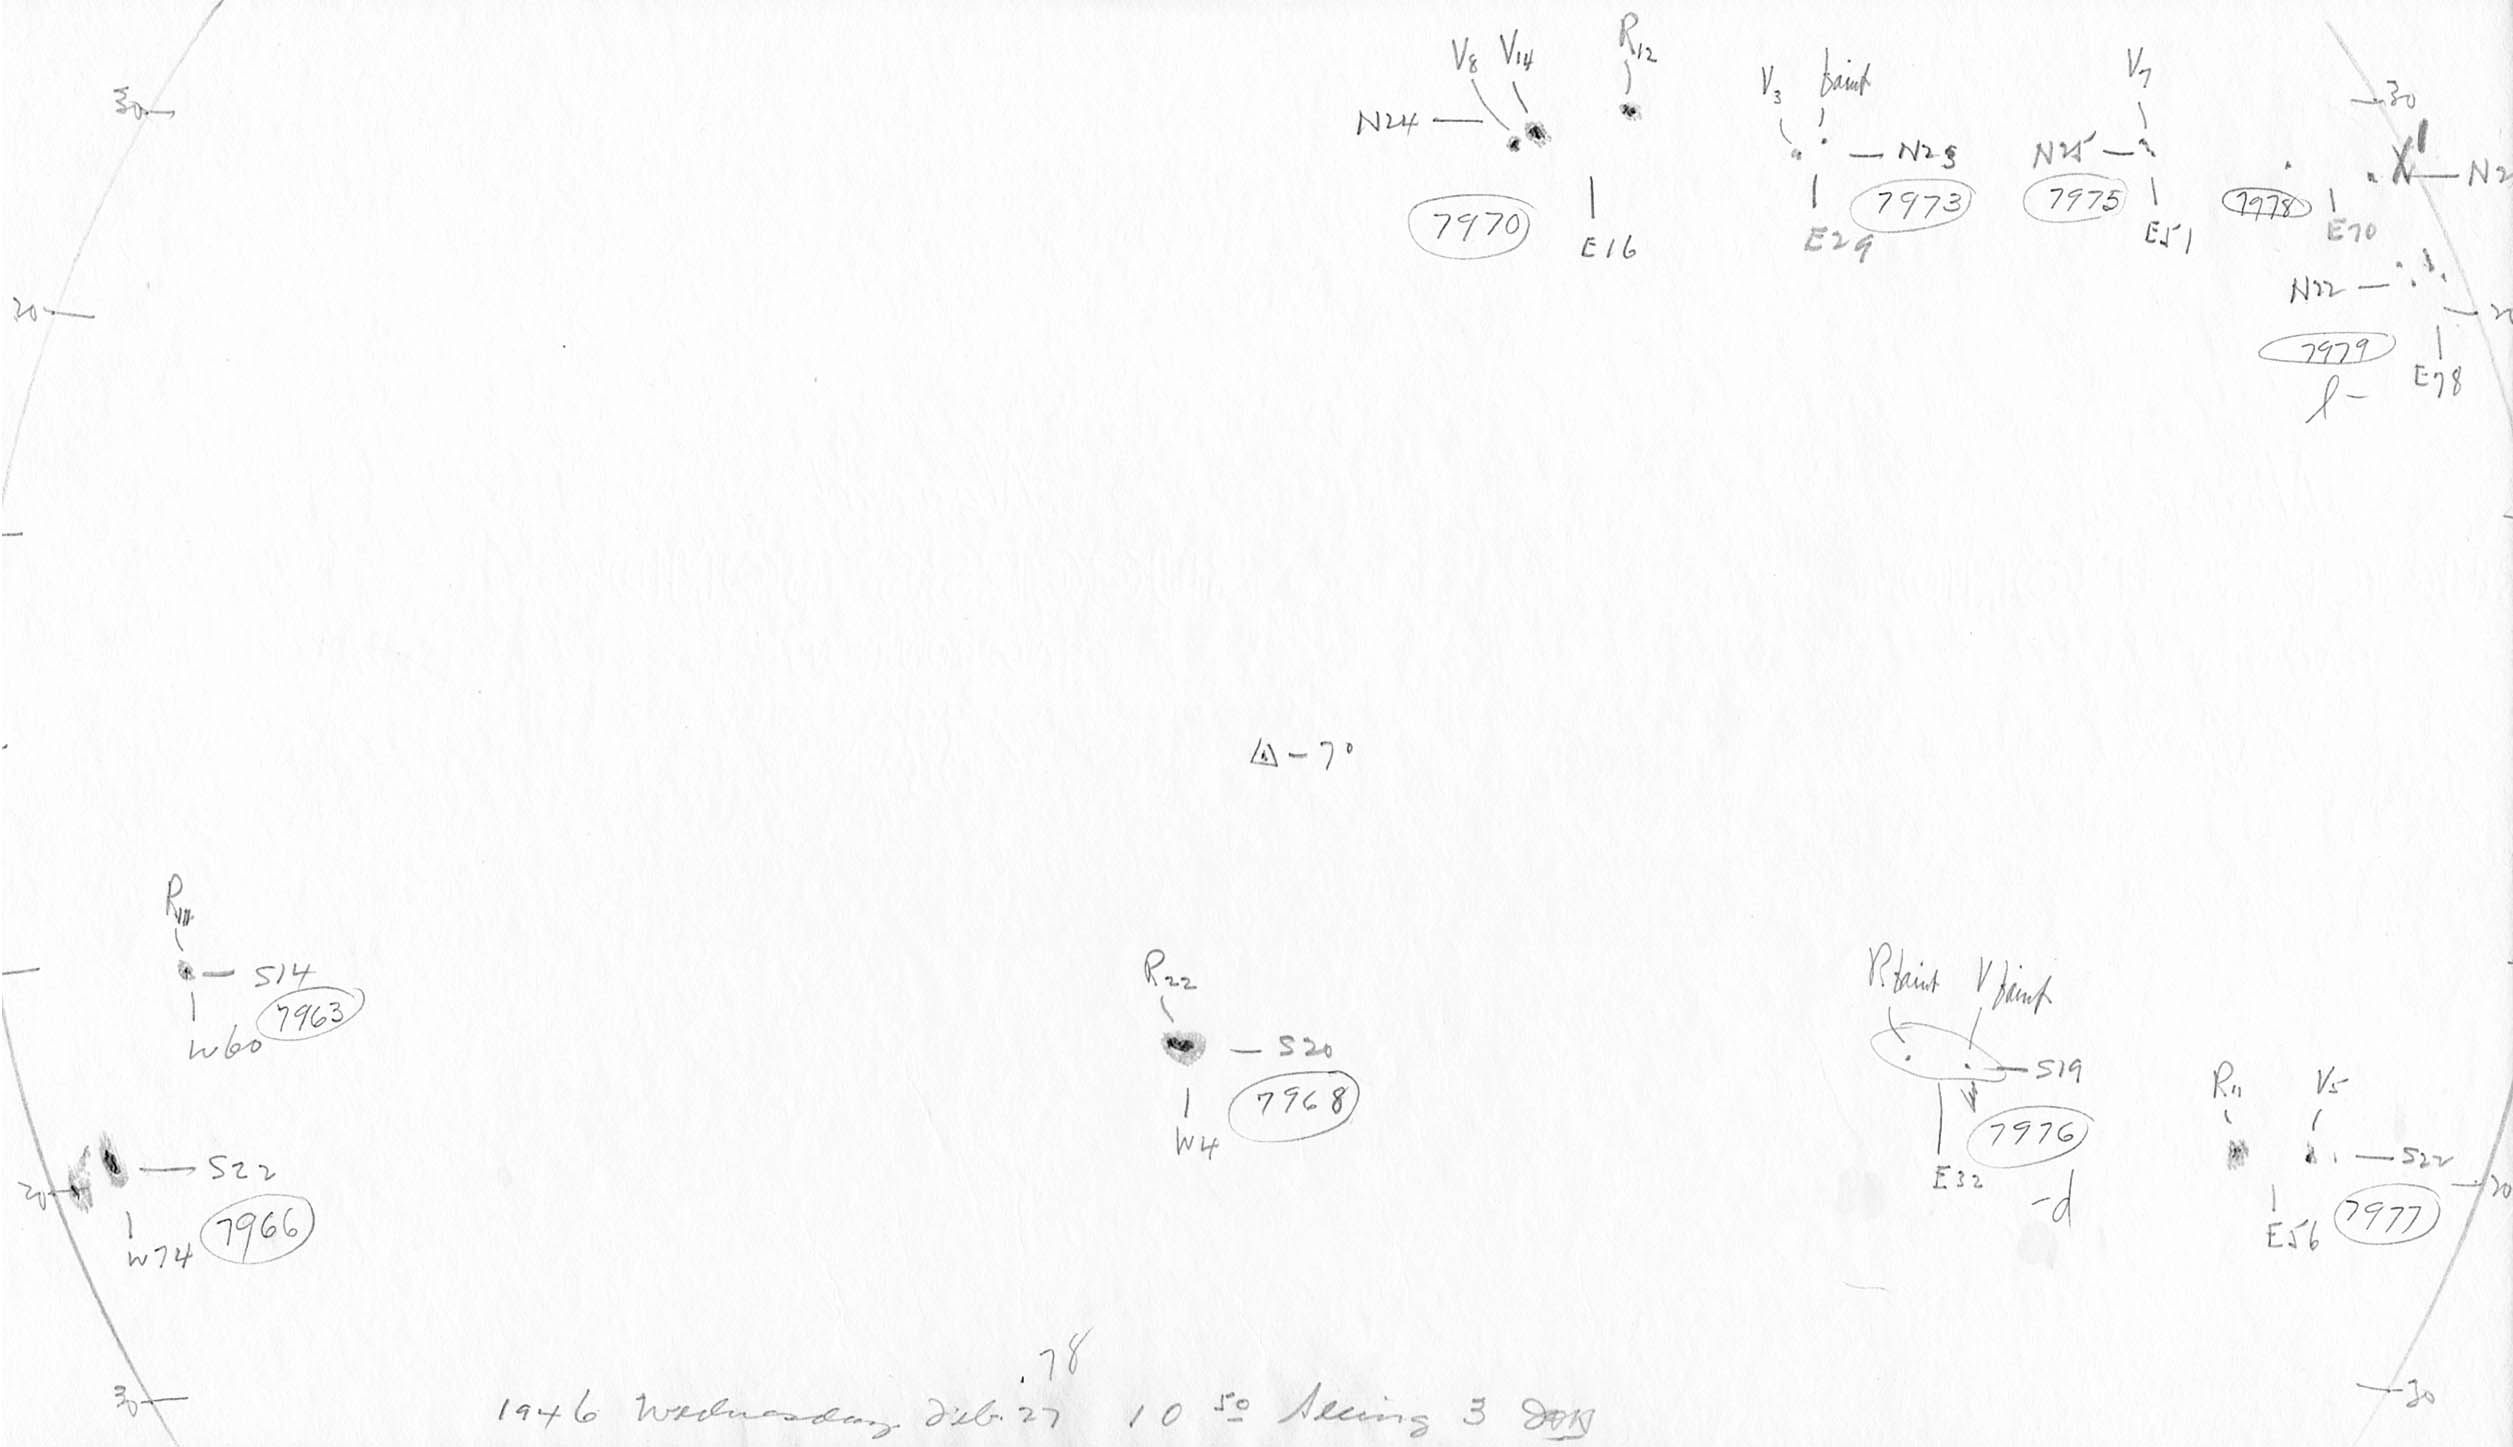 V8 V14 R12
V3 faint V7
30 30
N24 N25 N25 N2
7970 7973 7975 7978
E16 E29 E51 E70
20 N22 20
7979 E78
l-
△-7°
R11
S14
7963
W60
R22
S20
7968
W4
R faint V faint
S19
7976
E32
-d
R11 V5
S22
7977
E56
20
S22
7966
W74
20
30 30
.78
1946 Wednesday Feb. 27 10 50 Seeing 3